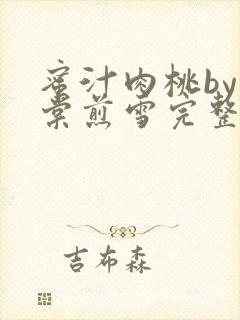 蜜汁肉桃by
棠煎雪完整
吉布森